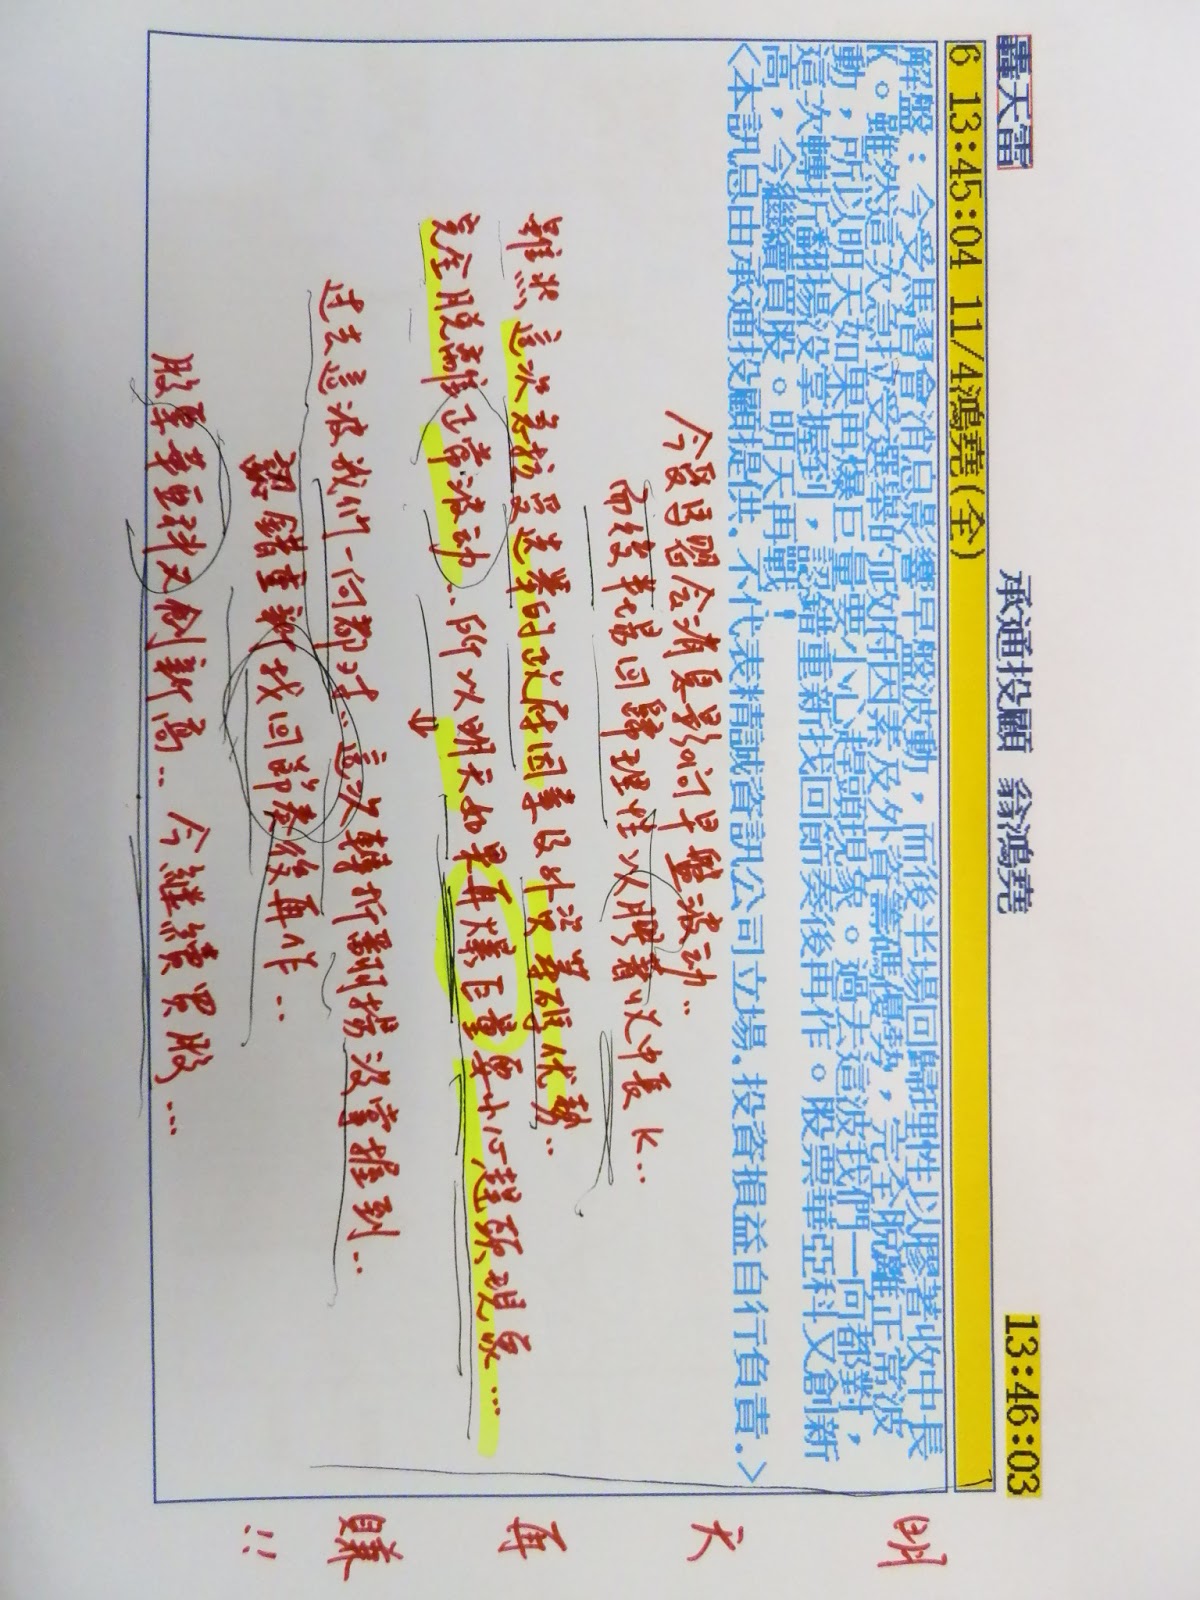 轟天雷 承通投顧 翁鴻堯 13:46:03
6 13:45:04 11/4鴻堯(全)
解盤：今受馬習會消息影響早盤波動，而後半場回歸理性以膠著收中長
K。雖然這次身於受選舉的政府因素及外資籌碼優勢，完全脫離正常波
動，所以明天如果再爆巨量要小心趕頭現象。過去這波我們一向都對，
這次轉折翻揚沒掌握到，認錯重新找回節奏後再作。股票華亞科又創新
高，今繼續買股。明天再戰！
<本訊息由承通投顧提供.不代表精誠資訊公司立場.投資損益自行負責.>
今受馬習会消息影响早盤波动..
而後半場回歸理性以膠着收中長K...
雖然這次身於受選举的政府因素及外资筹碼优勢..
完全脫離正常波动...所以明天如果再爆巨量要小心趕頭現象...
过去這波我们一向都对..這次轉折翻揚沒掌握到...
認錯重新找回節奏後再作...
股票華亞科又創新高...今继續買股...
明天再賺!!